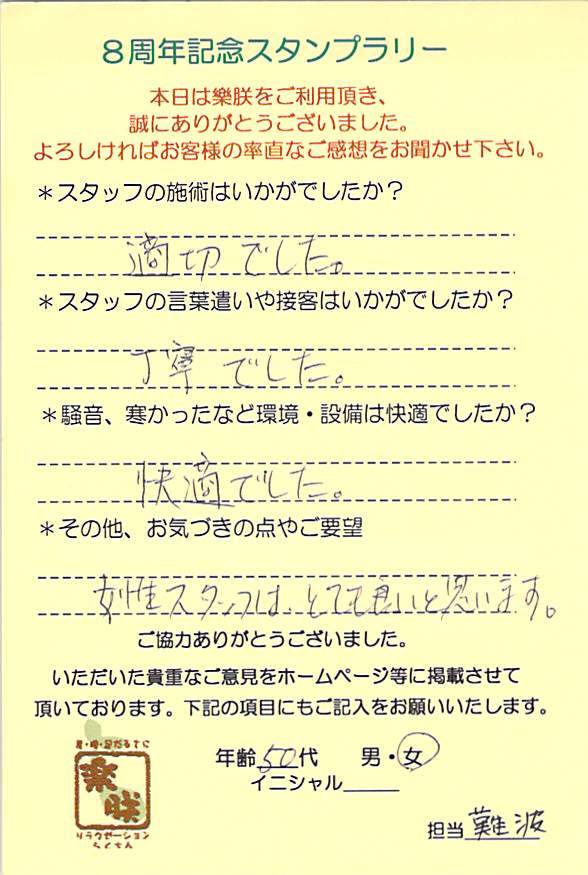 8周年記念スタンプラリー
本日は樂朕をご利用頂き、
誠にありがとうございました。
よろしければお客様の率直なご感想をお聞かせ下さい。
＊スタッフの施術はいかがでしたか？
適切でした。
＊スタッフの言葉遣いや接客はいかがでしたか？
丁寧でした。
＊騒音、寒かったなど環境・設備は快適でしたか？
快適でした。
＊その他、お気づきの点やご要望
女性スタッフは、とても良いと思います。
ご協力ありがとうございました。
いただいた貴重なご意見をホームページ等に掲載させて
頂いております。下記の項目にもご記入をお願いいたします。
年齢50代 男・女
イニシャル
樂朕
リラクゼーション
らくちん
担当 難波